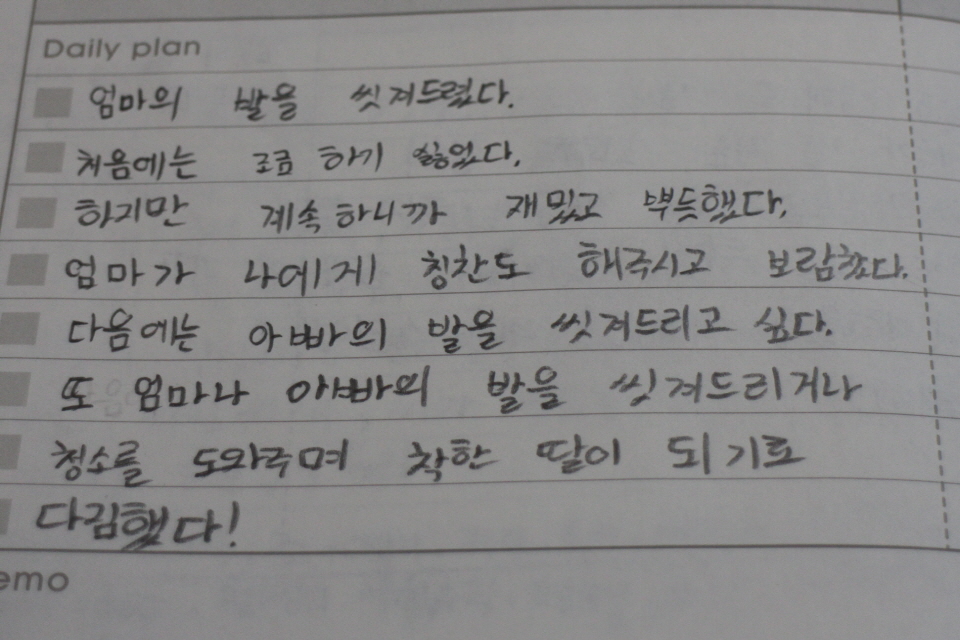 Daily plan
엄마의 발을 씻겨드렸다.
처음에는 조금 하기 싫었다.
하지만 계속하니까 재밌고 뿌듯했다.
엄마가 나에게 칭찬도 해주시고 보람찼다.
다음에는 아빠의 발을 씻겨드리고 싶다.
또 엄마나 아빠의 발을 씻겨드리거나
청소를 도와주며 착한 딸이 되기로
다짐했다!
emo